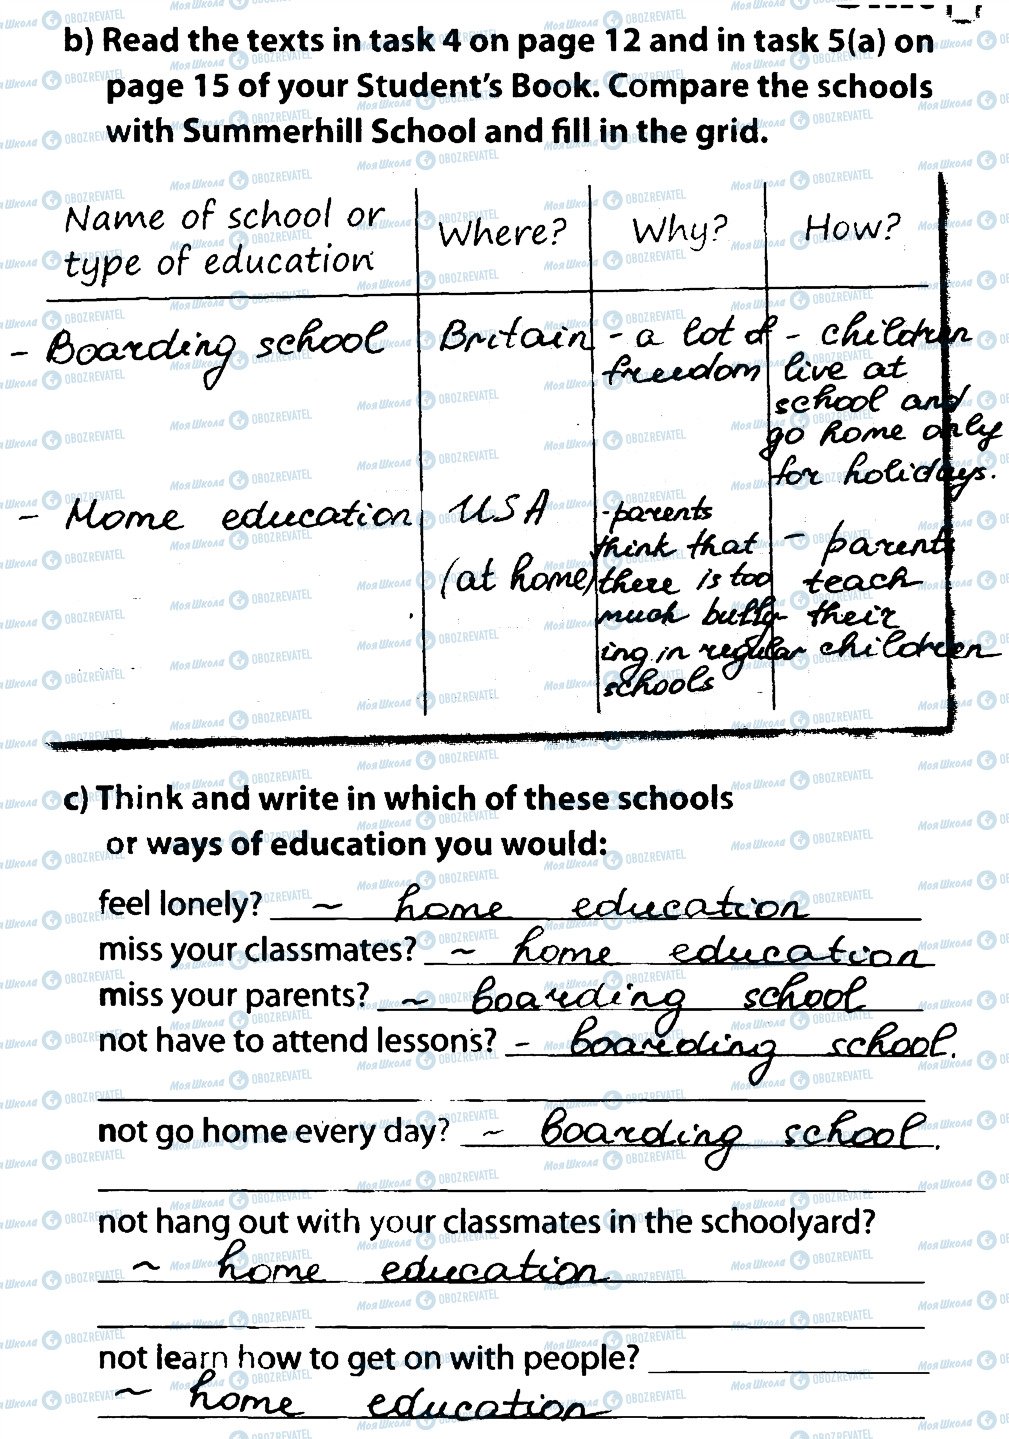 b) Read the texts in task 4 on page 12 and in task 5(a) on
page 15 of your Student's Book. Compare the schools
with Summerhill School and fill in the grid.
Name of school or
type of education
Where?
Why?
How?
- Boarding school
Britain
- a lot of
freedom
- children
live at
school and
go home only
for holidays.
- Home education
USA
(at home)
-parents
think that
there is too
much bully-
ing in regular
schools
- parents
teach
their
children
c) Think and write in which of these schools
or ways of education you would:
feel lonely? ~ home education
miss your classmates? ~ home education
miss your parents? ~ boarding school
not have to attend lessons? - boarding school.
not go home every day? ~ boarding school.
not hang out with your classmates in the schoolyard?
~ home education
not learn how to get on with people?
~ home education
Моя Школа OBOZREVATEL